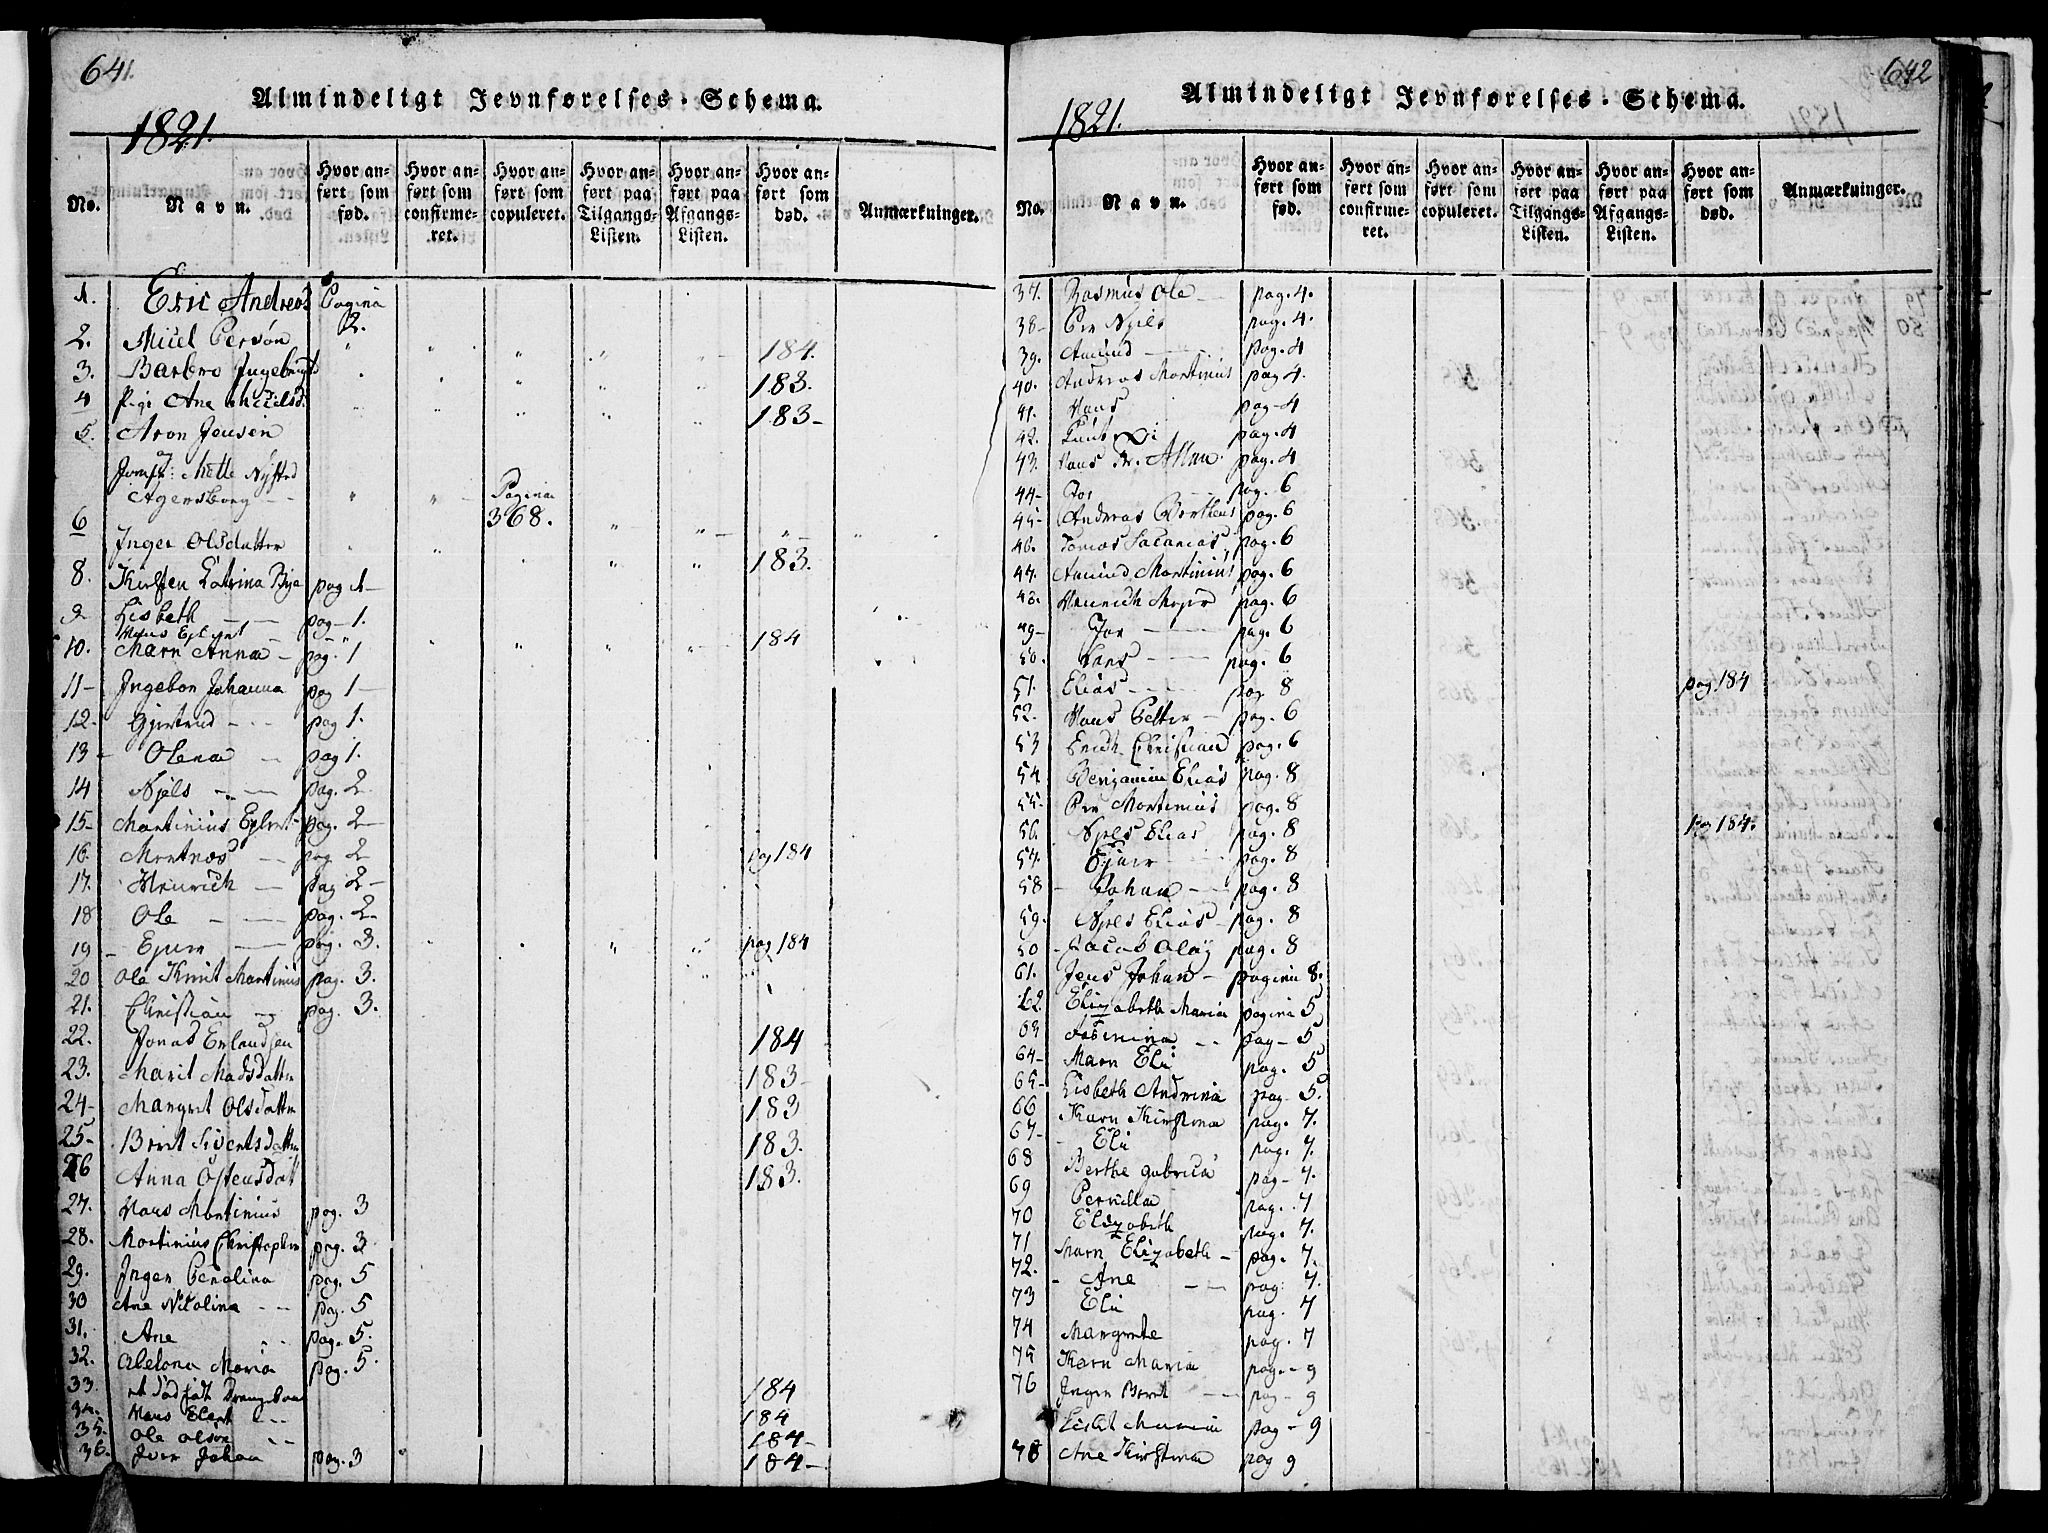 641.
Almindeligt Jevnførelses-Schema.
1821.
No.
Navn.
Hvor anført som fød.
Hvor anført som confirmeret.
Hvor anført som copuleret.
Hvor anført paa Tilgangs-Listen.
Hvor anført paa Afgangs-Listen.
Hvor anført som død.
Anmærkninger.
1. Eric Andreas Pagina 2.
2. Micel Persøn 184.
3. Barbro Ingebrigtsd 183.
4 Pige Ane Micelsd. 183-
5. Aron Jensen
Jomfr: Mette Nysted
Agersborg Pagina 368.
6 Inger Olsdatter 183.
8. Kirsten Catrina Bya pag 1
9 Lisbeth pag-1.
Hans Eylert 184
10. Marn Anna - pag. 1
11- Ingebor Johanna pag 1-
12. Gjertrud pag 1.
13- Olena pag 1.
14 Njels pag. 2
15- Martinius Eylert pag. 2-
16. Mortnas pag 2 pag 184
17. Henrich pag 2-
18 Ole pag. 2-
19 - Ejner pag. 3. pag 184
20 Ole Knut Martinius pag. 3.
21. Christian pag. 3.
22. Jonas Erlandsen 184
23. Marit Madsdatter 183-
24- Margret Olsdatter 183
25- Brit Sivertsdatter 183.
26 Anna Østensdat 183.
27. Hans Martinius pag. 3
28. Mortinius Christopher pag. 3
29. Inger Perolina pag. 5
30 Ane Nicolina pag. 5
31. Ane pag. 5.
32. Abelona Maria pag. 5
33. et død født Drengebarn 184
34. Hans Elert 184
35. Ole Olsen 184-
36. Iver Johan pag. 3 184-
642
Almindeligt Jevnførelses-Schema.
1821.
No.
Navn.
Hvor anført som fød.
Hvor anført som confirmeret.
Hvor anført som copuleret.
Hvor anført paa Tilgangs-Listen.
Hvor anført paa Afgangs-Listen.
Hvor anført som død.
Anmærkninger.
37. Rasmus Ole pag. 4.
38- Per Njels pag. 4.
39. Amund pag. 4
40. Andreas Martinius pag 4.
41. Hans pag-4
42. Knut pag. 4
43. Hans pag. 4
44- Jor pag. 6
45- Andreas Bertheus pag. 6
46. Tomas Sacarias pag. 6
47. Amund Martinius pag. 6
48. Henrich Mejer pag. 6
49- Jor pag. 6
50. Lars pag. 6
51. Elias pag. 8 pag 184
52. Hans Petter - pag. 6
53 Erich Christian pag. 6
54 Benjamin Elias pag. 8
55- Per Martinius pag. 8
56. Njels Elias pag. 8 pag 184.
57. Ejner pag. 8
58 - Johan pag. 8
59. Njels Elias - pag. 8
50 - Jacob Olaj pag. 8
61. Jens Johan - pagina 8.
62. Elizabeth Maria pagina 5
63 Josmina pag- 5
64- Marn Eli pag. 5
65- Lisbeth Andrina pag. 5.
66 Karn Kirstina pag. 7.
67- Eli pag. 7.
68 Berthe Gabricia pag- 7.
69 Pernilla pag. 7
70 Elizabeth pag. 7.
71 Marn Elizabeth - pag. 7.
72. - Ane pag. 7.
73 Eli pag. 7
74 Margrete pag. 7
75 Karn Maria pag.- 9
76 Inger Berit pag- 9
Maria pag- 9
78 Ane Kirstina pag 9